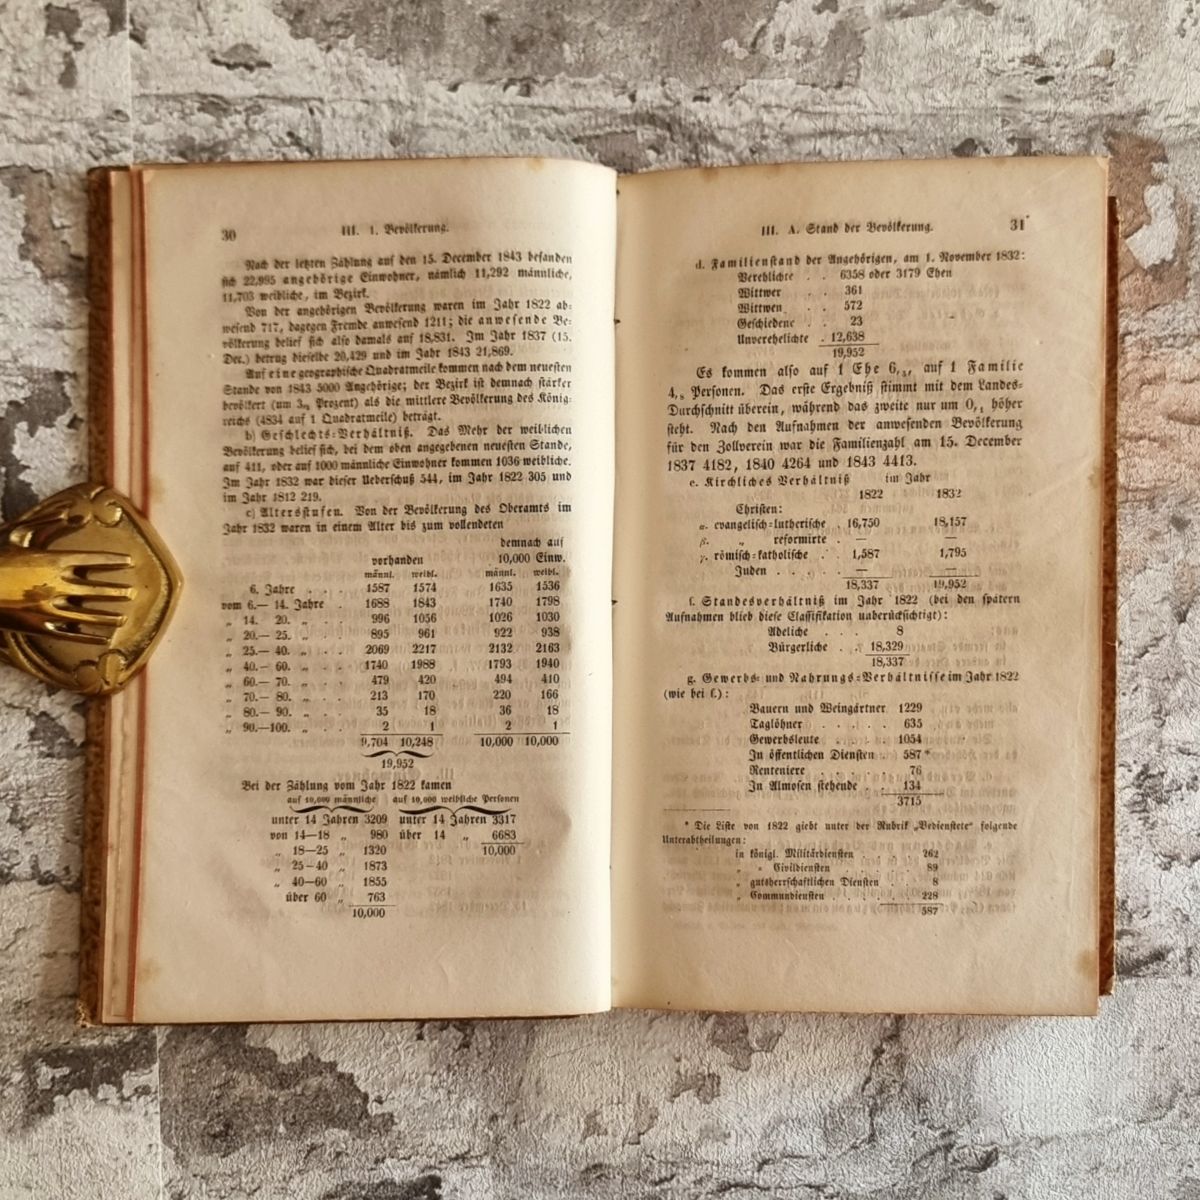 30
III. 1. Bevölkerung.
Nach der letzten Zählung auf den 15. December 1843 befanden
sich 22,995 angehörige Einwohner, nämlich 11,292 männliche,
11,703 weibliche, im Bezirk.
Von der angehörigen Bevölkerung waren im Jahr 1822 ab-
wesend 717, dagegen Fremde anwesend 1211; die anwesende Be-
völkerung belief sich also damals auf 18,831. Im Jahr 1837 (15.
Dec.) betrug dieselbe 20,429 und im Jahr 1843 21,869.
Auf eine geographische Quadratmeile kommen nach dem neuesten
Stande von 1843 5000 Angehörige; der Bezirk ist demnach stärker
bevölkert (um 3, Prozent) als die mittlere Bevölkerung des König-
reichs (4834 auf 1 Quadratmeile) beträgt.
b) Geschlechts-Verhältniß. Das Mehr der weiblichen
Bevölkerung belief sich, bei dem oben angegebenen neuesten Stande,
auf 411, oder auf 1000 männliche Einwohner kommen 1036 weibliche.
Im Jahr 1832 war dieser Ueberschuß 544, im Jahr 1822 305 und
im Jahr 1812 219.
c) Altersstufen. Von der Bevölkerung des Oberamts im
Jahr 1832 waren in einem Alter bis zum vollendeten
demnach auf
vorhanden 10,000 Einw.
männl. weibl. männl. weibl.
6. Jahre . . . 1587 1574 1635 1536
vom 6.— 14. Jahre . 1688 1843 1740 1798
„ 14. 20. „ . . 996 1056 1026 1030
„ 20.— 25. „ . . 895 961 922 938
„ 25.— 40. „ . . 2069 2217 2132 2163
„ 40.— 60. „ . . 1740 1988 1793 1940
„ 60.— 70. „ . . 479 420 494 410
„ 70.— 80. „ . . 213 170 220 166
„ 80.— 90. „ . . 35 18 36 18
„ 90.—100. „ . . 2 1 2 1
9,704 10,248 10,000 10,000
19,952
Bei der Zählung vom Jahr 1822 kamen
auf 10,000 männliche auf 10,000 weibliche Personen
unter 14 Jahren 3209 unter 14 Jahren 3317
von 14—18 „ 980 über 14 „ 6683
„ 18—25 „ 1320 10,000
„ 25—40 „ 1873
„ 40—60 „ 1855
über 60 „ 763
10,000
III. A. Stand der Bevölkerung.
31
d. Familienstand der Angehörigen, am 1. November 1832:
Verehlichte . . 6358 oder 3179 Ehen
Wittwer . . 361
Wittwen . . 572
Geschiedene . . 23
Unverehelichte . 12,638
19,952
Es kommen also auf 1 Ehe 6,₃, auf 1 Familie
4,₈ Personen. Das erste Ergebniß stimmt mit dem Landes-
Durchschnitt überein, während das zweite nur um 0,₁ höher
steht. Nach den Aufnahmen der anwesenden Bevölkerung
für den Zollverein war die Familienzahl am 15. December
1837 4182, 1840 4264 und 1843 4413.
e. Kirchliches Verhältniß im Jahr
1822 1832
Christen:
α. evangelisch-lutherische . 16,750 18,157
β. „ reformirte . — —
γ. römisch-katholische . . 1,587 1,795
Juden . . . . . — —
18,337 19,952
f. Standesverhältniß im Jahr 1822 (bei den spätern
Aufnahmen blieb diese Classifikation unberücksichtigt):
Adeliche . . . 8
Bürgerliche . . 18,329
18,337
g. Gewerbs- und Nahrungs-Verhältnisse im Jahr 1822
(wie bei f.):
Bauern und Weingärtner 1229
Taglöhner . . . . . 635
Gewerbsleute . . . . 1054
In öffentlichen Diensten . 587 *
Renteniere . . . . . 76
In Almosen stehende . . 134
3715
* Die Liste von 1822 giebt unter der Rubrik „Bedienstete“ folgende
Unterabtheilungen:
in königl. Militärdiensten . . . 262
„ „ Civildiensten . . . . 89
„ gutsherrschaftlichen Diensten . . 8
„ Commundiensten . . . . . . 228
587